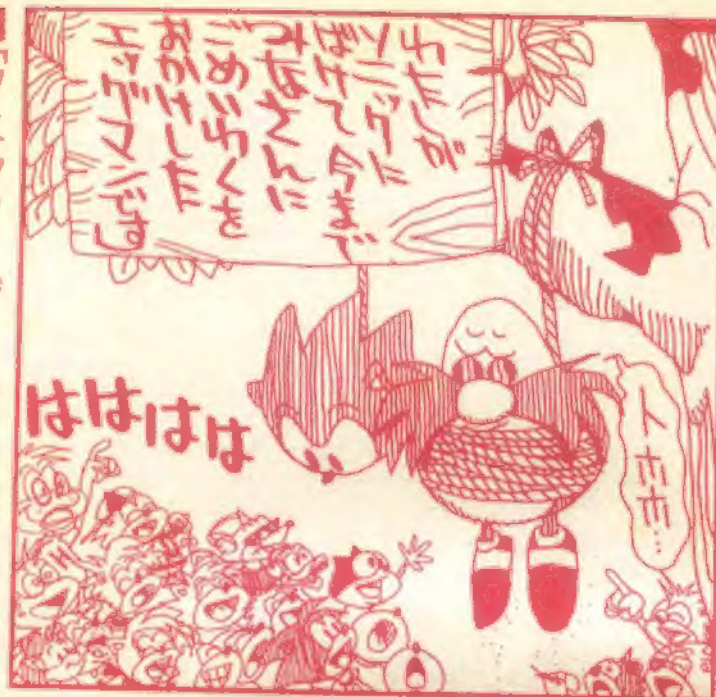 わたしが
ソニックに
ばけて今まで
ごめいわくを
おかけした
エッグマンです
トホホ…
はははは